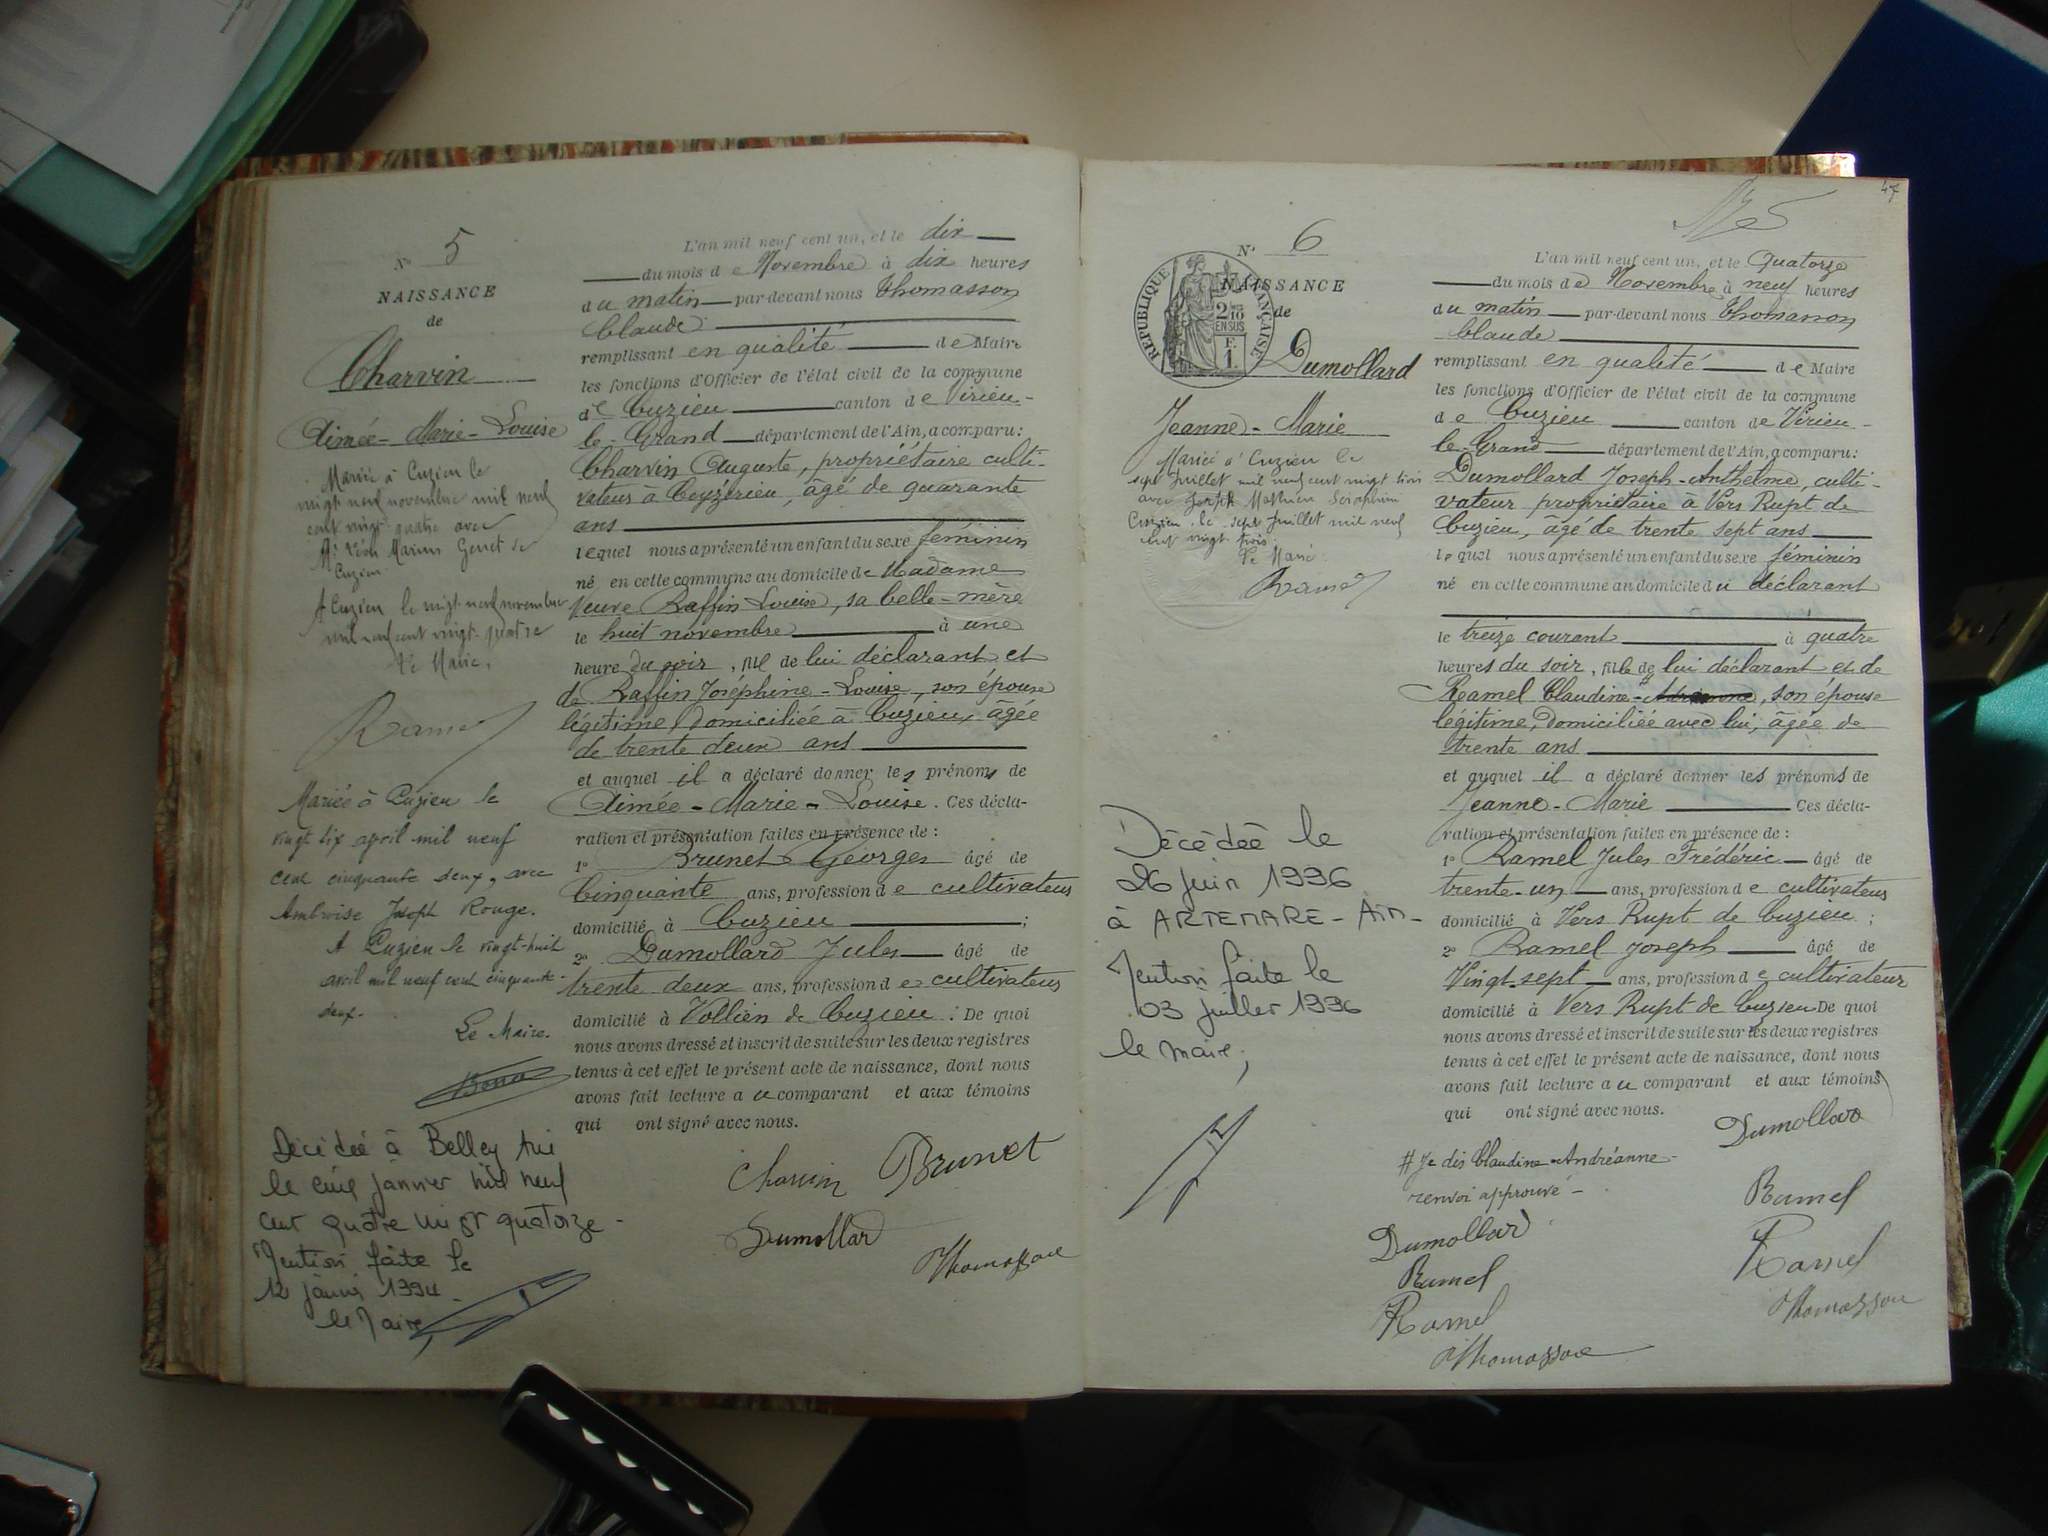 N° 5
NAISSANCE
de
Charvin
Aimée-Marie-Louise
Mariée à Cuzieu le
vingt neuf novembre mil neuf
cent vingt-quatre avec
Mr Léon Marius Genet de
Cuzieu
A Cuzieu le vingt-neuf novembre
mil neuf cent vingt-quatre
Le Maire,
Ramel
Mariée à Cuzieu le
vingt six april mil neuf
cent cinquante deux, avec
Ambroise Joseph Rouge.
A Cuzieu le vingt-huit
avril mil neuf cent cinquante-
deux.
Le Maire.
Décédée à Belley Ain
le cinq janvier mil neuf
cent quatre vingt quatorze -
Mention faite le
12 janvier 1994 -
le Maire,
L'an mil neuf cent un, et le dix
du mois de Novembre à dix heures
du matin par-devant nous Thomasson
Claude
remplissant en qualité de Maire
les fonctions d'Officier de l'état civil de la commune
de Cuzieu canton de Virieu-
le-Grand département de l'Ain, a comparu:
Charvin Auguste, propriétaire culti-
vateur à Ceyzérieu, âgé de quarante
ans
lequel nous a présenté un enfant du sexe féminin
né en cette commune au domicile de Madame
Veuve Raffin Louise, sa belle-mère
le huit novembre à une
heure du soir, fille de lui déclarant et
de Raffin Joséphine-Louise, son épouse
légitime, domiciliée à Cuzieu, âgée
de trente deux ans
et auquel il a déclaré donner les prénoms de
Aimée-Marie-Louise. Ces décla-
ration et présentation faites en présence de :
1° Brunet Georges âgé de
Cinquante ans, profession de cultivateur
domicilié à Cuzieu ;
2° Dumollard Jules âgé de
trente deux ans, profession de cultivateur
domicilié à Vollien de Cuzieu. De quoi
nous avons dressé et inscrit de suite sur les deux registres
tenus à cet effet le présent acte de naissance, dont nous
avons fait lecture au comparant et aux témoins
qui ont signé avec nous.
Charvin Brunet
Dumollard
Thomasson
47
N° 6
NAISSANCE
de
RÉPUBLIQUE FRANÇAISE
2/10
EN SUS
F.
1.
Dumollard
Jeanne-Marie
Mariée à Cuzieu le
sept Juillet mil neuf cent vingt trois
avec Joseph Mathieu Séraphin
Cuzieu, le sept Juillet mil neuf
cent vingt trois.
Le Maire
Ramel
Décédée le
26 Juin 1996
à ARTEMARE - Ain -
Mention faite le
03 juillet 1996
le maire,
L'an mil neuf cent un, et le quatorze
du mois de Novembre à neuf heures
du matin par-devant nous Thomasson
Claude
remplissant en qualité de Maire
les fonctions d'Officier de l'état civil de la commune
de Cuzieu canton de Virieu-
le-Grand département de l'Ain, a comparu:
Dumollard Joseph-Anthelme, culti-
vateur propriétaire à Vers Rupt de
Cuzieu, âgé de trente sept ans
lequel nous a présenté un enfant du sexe féminin
né en cette commune au domicile du déclarant
le treize courant à quatre
heures du soir, fille de lui déclarant et de
Ramel Claudine-, son épouse
légitime, domiciliée avec lui, âgée de
trente ans
et auquel il a déclaré donner les prénoms de
Jeanne-Marie Ces décla-
ration et présentation faites en présence de :
1° Ramel Jules Frédéric âgé de
trente-un ans, profession de cultivateur
domicilié à Vers Rupt de Cuzieu ;
2° Ramel Joseph âgé de
Vingt-sept ans, profession de cultivateur
domicilié à Vers Rupt de Cuzieu De quoi
nous avons dressé et inscrit de suite sur les deux registres
tenus à cet effet le présent acte de naissance, dont nous
avons fait lecture au comparant et aux témoins
qui ont signé avec nous.
Dumollard
# Je dis Claudine-Andréanne-
renvoi approuvé -
Ramel
Dumollard
Ramel
Ramel
Ramel
Thomasson
Thomasson